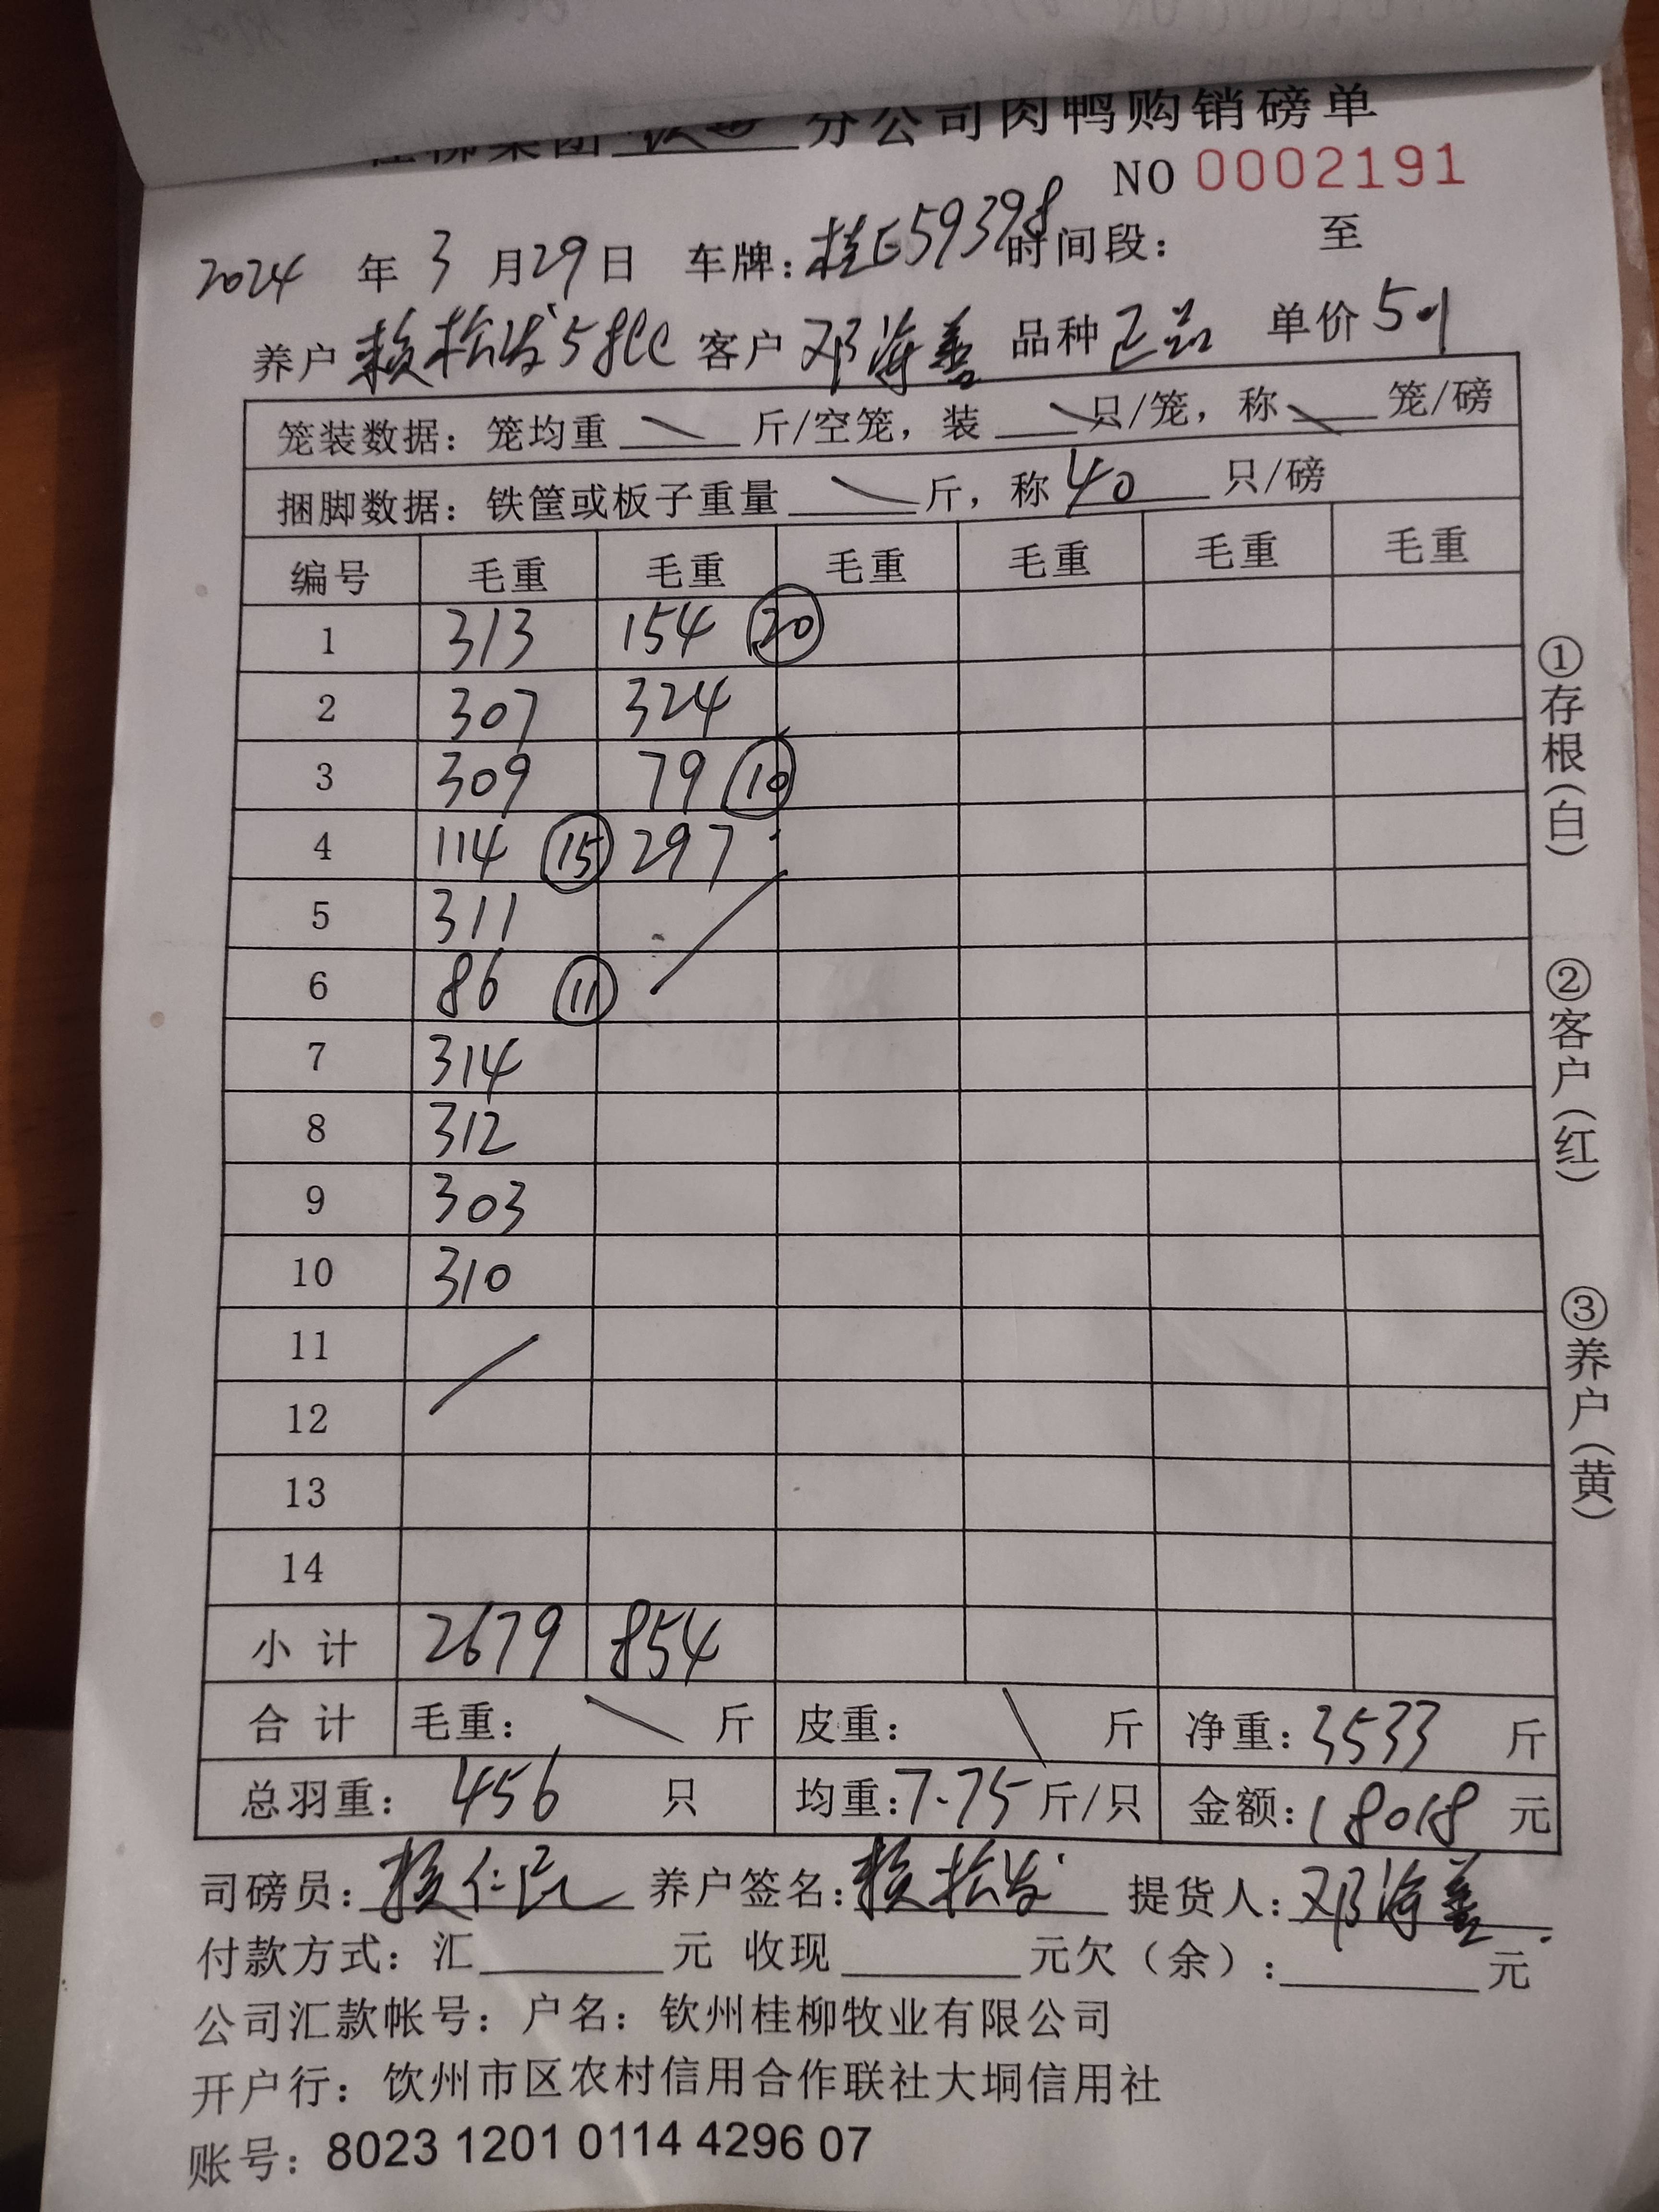 分公司肉鸭购销磅单
NO 0002191
2024 年 3 月 29 日 车牌：桂E59398 时间段： 至
养户 赖松发 客户 邓海善 品种 正品 单价 5.1
笼装数据：笼均重 \ 斤/空笼，装 \ 只/笼，称 \ 笼/磅
捆脚数据：铁筐或板子重量 \ 斤，称 40 只/磅
编号 毛重 毛重 毛重 毛重 毛重 毛重
1 313 154 ⑳
2 307 324
3 309 79 ⑩
4 114 ⑮ 297
5 311
6 86 ⑪
7 314
8 312
9 303
10 310
11
12
13
14
小计 2679 854
合计 毛重： \ 斤 皮重： \ 斤 净重：3533 斤
总羽重： 456 只 均重：7.75 斤/只 金额：18018 元
司磅员： 养户签名：赖松发 提货人：邓海善
付款方式：汇______元 收现______元欠（余）：______元
公司汇款帐号：户名：钦州桂柳牧业有限公司
开户行：钦州市区农村信用合作联社大垌信用社
账号：8023 1201 0114 4296 07
①存根（白）
②客户（红）
③养户（黄）